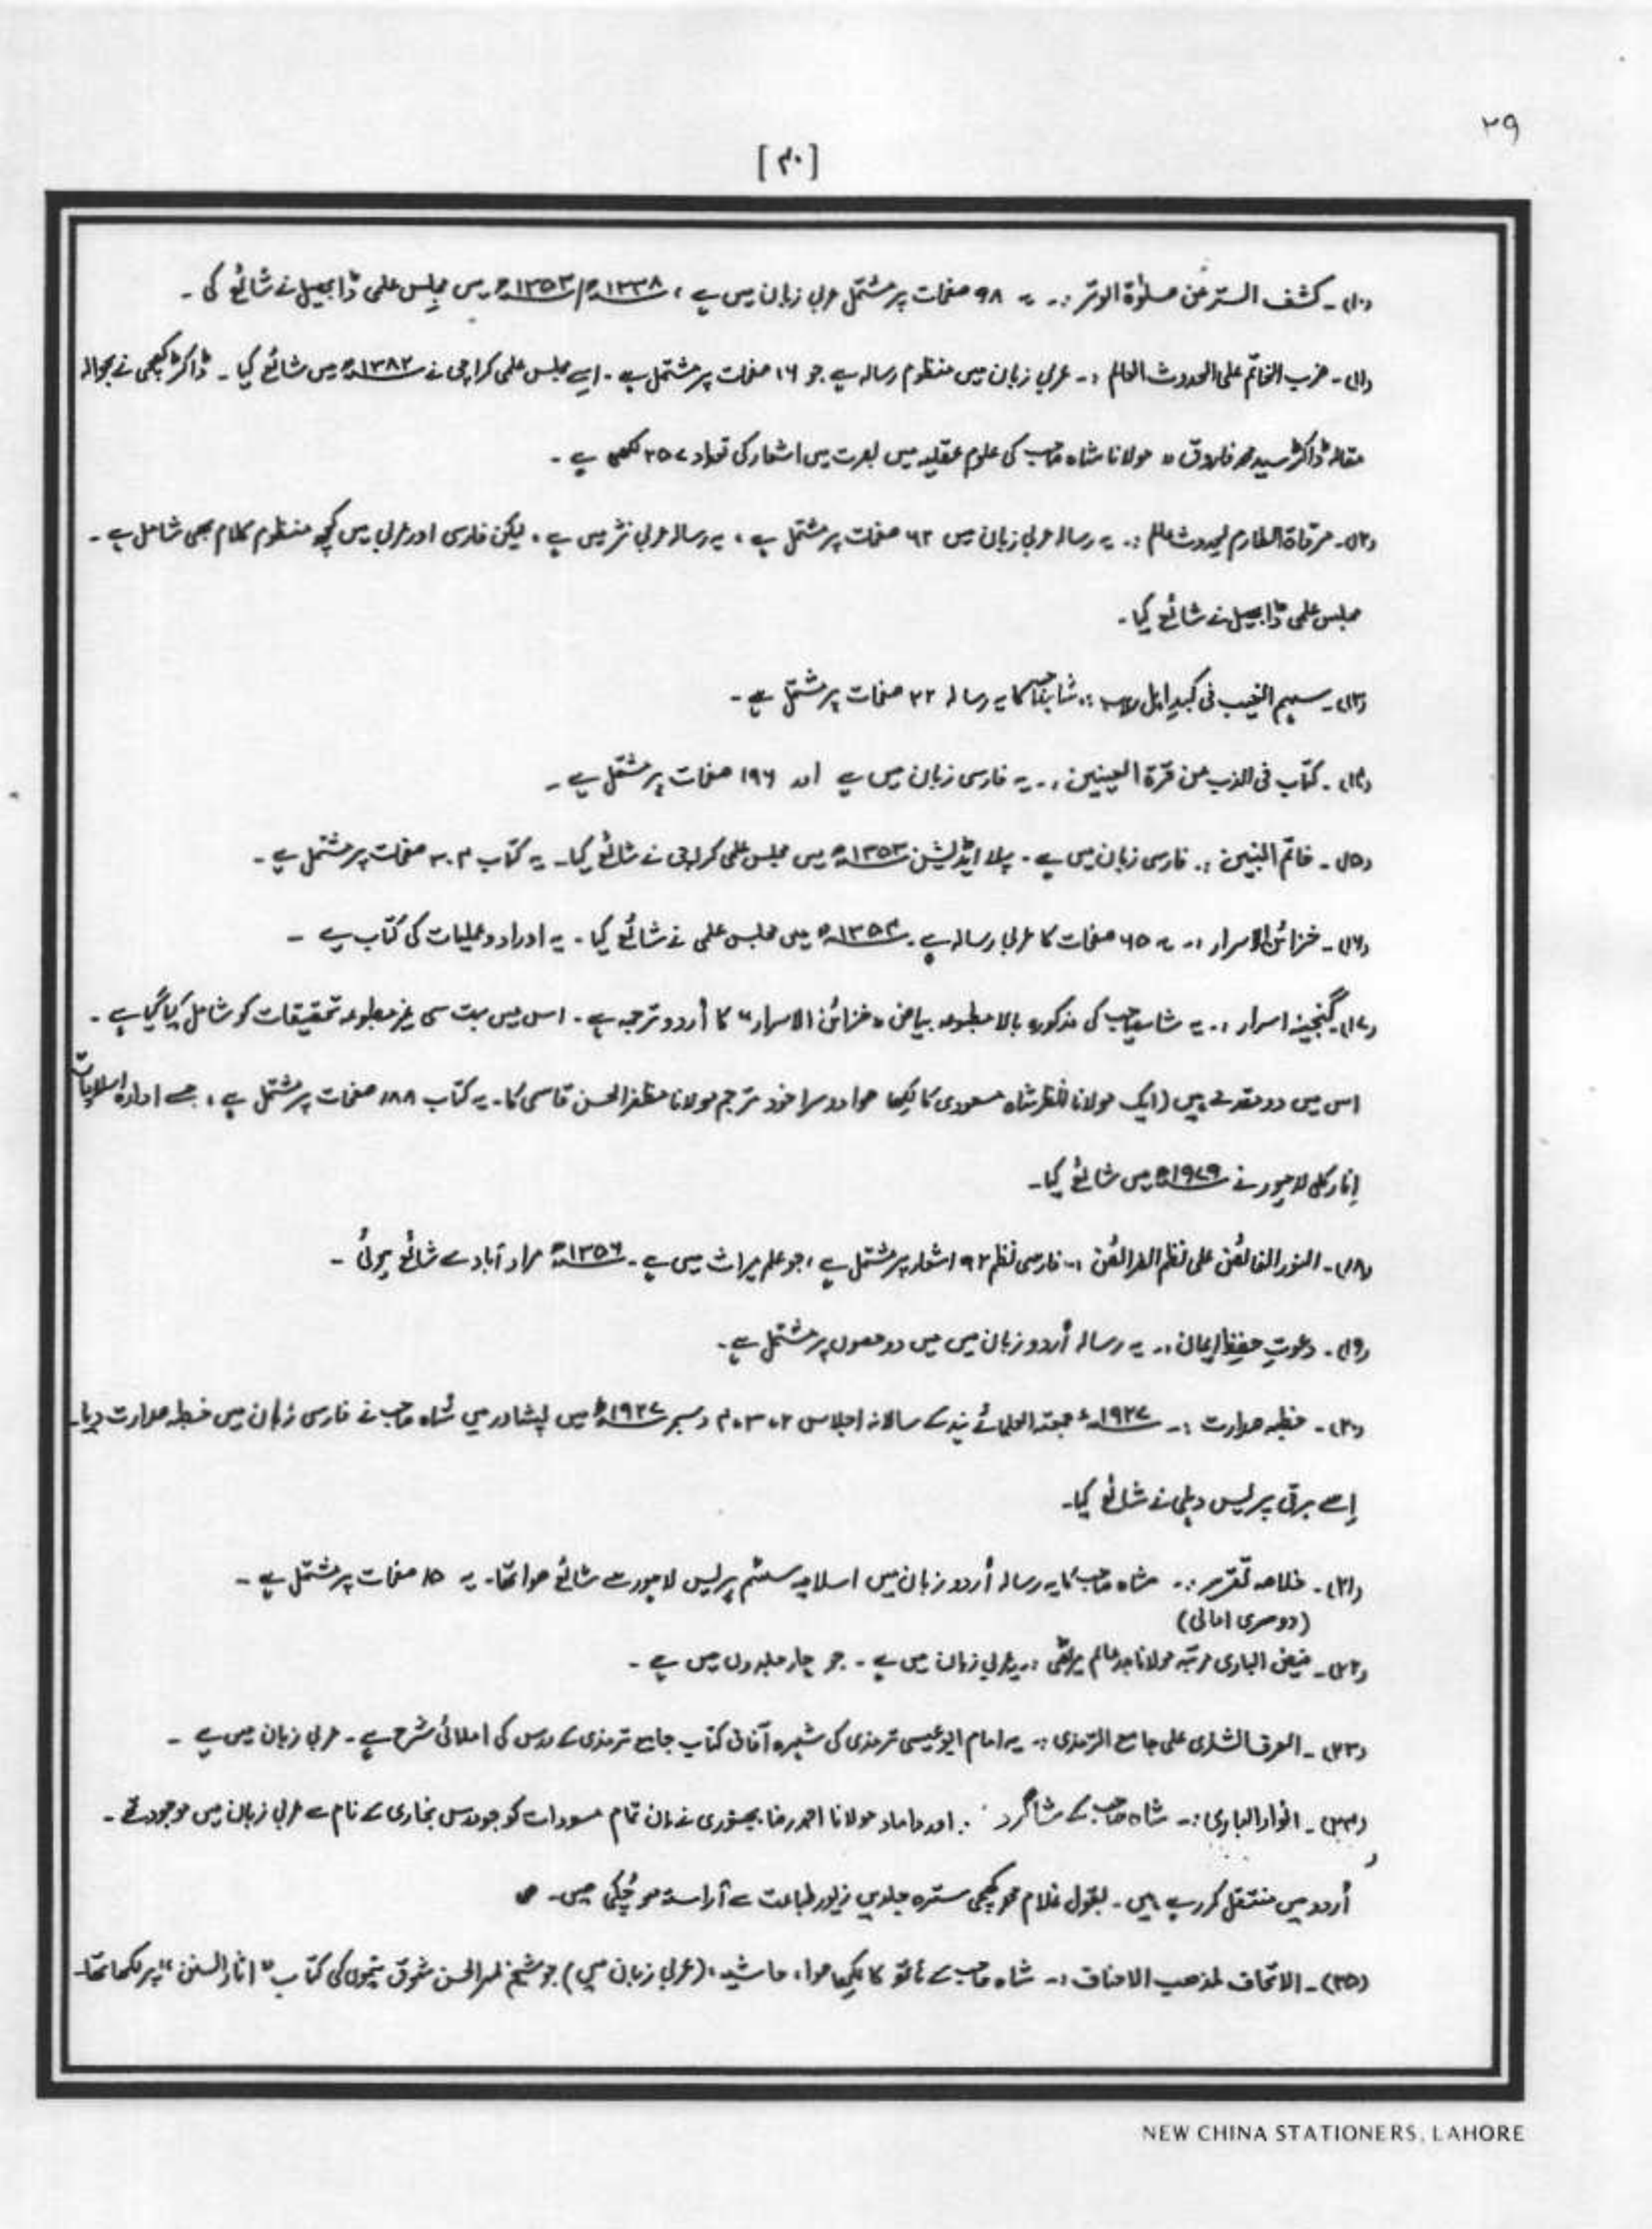 ۲۹
[۴۰]
(۱۰)۔ کشف الستر عن صلوٰۃ الوتر :۔ یہ ۹۸ صفحات پر مشتمل عربی زبان میں ہے ، ۱۳۳۸ھ/۱۳۵۳ھ میں مجلس علمی ڈابھیل نے شائع کی ۔
(۱۱)۔ ضرب الخاتم علی الحدوث العالم :۔ عربی زبان میں منظوم رسالہ ہے جو ۱۶ صفحات پر مشتمل ہے ۔ اسے مجلس علمی کراچی نے ۱۳۸۲ھ میں شائع کیا ۔ ڈاکٹر کچھی نے بحوالہ
مقالہ ڈاکٹر سید محمد فاروق " مولانا شاہ صاحب کی علوم عقلیہ میں بصرت میں اشعار کی تعداد ۳۵۷ لکھی ہے ۔
(۱۲)۔ مرقاۃ الطارم لحدوث عالم :۔ یہ رسالہ عربی زبان میں ۶۲ صفحات پر مشتمل ہے ، یہ رسالہ عربی نثر میں ہے ، لیکن فارسی اور عربی میں کچھ منظوم کلام بھی شامل ہے ۔
مجلس علمی ڈابھیل نے شائع کیا ۔
(۱۳)۔ سہم الغیب فی کبد اہل :۔ شاہ صاحب کا یہ رسالہ ۲۲ صفحات پر مشتمل ہے ۔
(۱۴)۔ کتاب فی الذب عن قرۃ العینین :۔ یہ فارسی زبان میں ہے اور ۱۹۶ صفحات پر مشتمل ہے ۔
(۱۵)۔ خاتم النبین :۔ فارسی زبان میں ہے ۔ پہلا ایڈیشن ۱۳۵۳ھ میں مجلس علمی کراچی نے شائع کیا ۔ یہ کتاب صفحات پر مشتمل ہے ۔
(۱۶)۔ خزائن الاسرار :۔ یہ ۶۵ صفحات کا عربی رسالہ ہے ۔ ۱۳۵۳ھ میں مجلس علمی نے شائع کیا ۔ یہ اوراد و عملیات کی کتاب ہے ۔
(۱۷)۔ گنجینہ اسرار :۔ یہ شاہ صاحب کی مذکورہ بالا مطبوعہ بیاض " خزائن الاسرار " کا اُردو ترجمہ ہے ۔ اس میں بہت سی غیر مطبوعہ تحقیقات کو شامل کیا گیا ہے ۔
اس میں دو مقدمے ہیں (ایک مولانا انظر شاہ مسعودی کا لکھا ہوا دوسرا خود مترجم مولانا مظفر الحسن قاسمی کا ۔ یہ کتاب ۱۸۸ صفحات پر مشتمل ہے ، جسے ادارہ اسلامیات
انارکلی لاہور نے ۱۹۷۹ء میں شائع کیا ۔
(۱۸)۔ النور الفائض علی نظم الفرائض :۔ فارسی نظم ۹۲ اشعار پر مشتمل ہے ، جو علم میراث میں ہے ۔ ۱۳۵۶ھ مراد آباد سے شائع ہوئی ۔
(۱۹)۔ دعوتِ حفظِ ایمان :۔ یہ رسالہ اُردو زبان میں میں دو حصوں پر مشتمل ہے ۔
(۲۰)۔ خطبہ صدارت :۔ ۱۹۲۷ء جمعیۃ العلمائے ہند کے سالانہ اجلاس ۲، ۳، ۴ دسمبر ۱۹۲۷ء میں پشاور میں شاہ صاحب نے فارسی زبان میں خطبہ صدارت دیا ۔
اِسے برقی پریس دہلی نے شائع کیا ۔
(۲۱)۔ خلاصہ تقریر :۔ شاہ صاحب کا یہ رسالہ اُردو زبان میں اسلامیہ سٹیم پریس لاہور سے شائع ہوا تھا ۔ یہ ۱۵ صفحات پر مشتمل ہے ۔
(دوسری امالی)
(۲۲)۔ فیض الباری مرتبہ مولانا بدر عالم میرٹھی :۔ یہ عربی زبان میں ہے ۔ جو چار جلدوں میں ہے ۔
(۲۳)۔ العرف الشذی علی جامع الترمذی :۔ یہ امام ابو عیسی ترمذی کی شہرہ آفاق کتاب جامع ترمذی کے درس کی املائی شرح ہے ۔ عربی زبان میں ہے ۔
(۲۴)۔ انوار الباری :۔ شاہ صاحب کے شاگرد اور داماد مولانا احمد رضا بجنوری نے ان تمام مسودات کو جو درس بخاری کے نام سے عربی زبان میں موجود تھے ۔
اُردو میں منتقل کر رہے ہیں ۔ بقول غلام محمد کچھی سترہ جلدیں زیور طباعت سے آراستہ ہو چُکی ہیں ۔
(۲۵)۔ الاتحاف لمذھب الاحناف :۔ شاہ صاحب کے ہاتھ کا لکھا ہوا ، حاشیہ ، (عربی زبان میں) جو شیخ ظہیر الحسن شوق نیموی کی کتاب " آثار السنن " پر لکھا تھا ۔
NEW CHINA STATIONERS, LAHORE